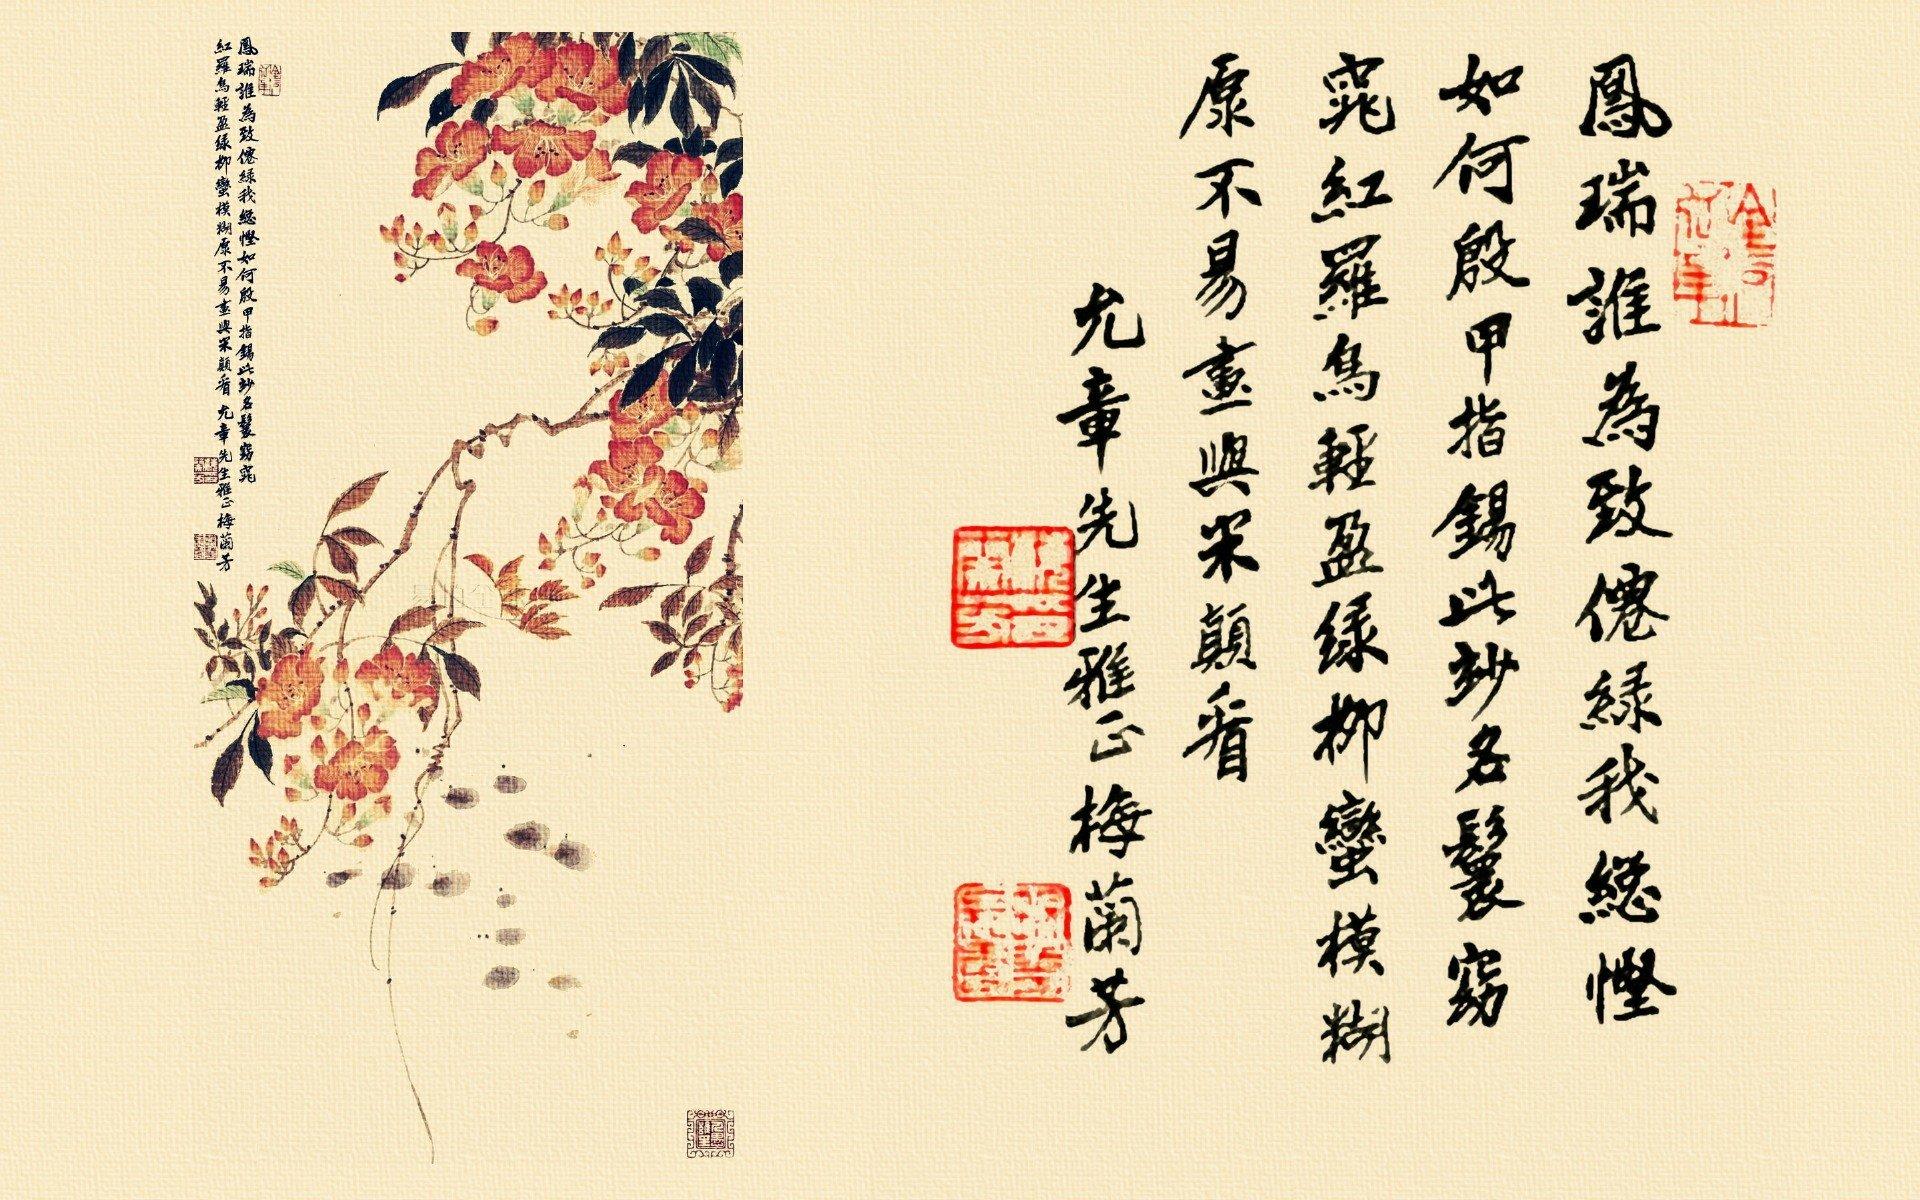 鳳瑞誰為致僊緣我總慳
如何殷甲指錫此玅名鬟窈
窕紅羅烏輕盈綠柳蠻模糊
原不易畫與宋顛看
尤章先生雅正梅蘭芳
鳳瑞誰為致僊緣我總慳如何殷甲指錫此玅名鬟窈窕
紅羅烏輕盈綠柳蠻模糊原不易畫與宋顛看尤章先生雅正梅蘭芳